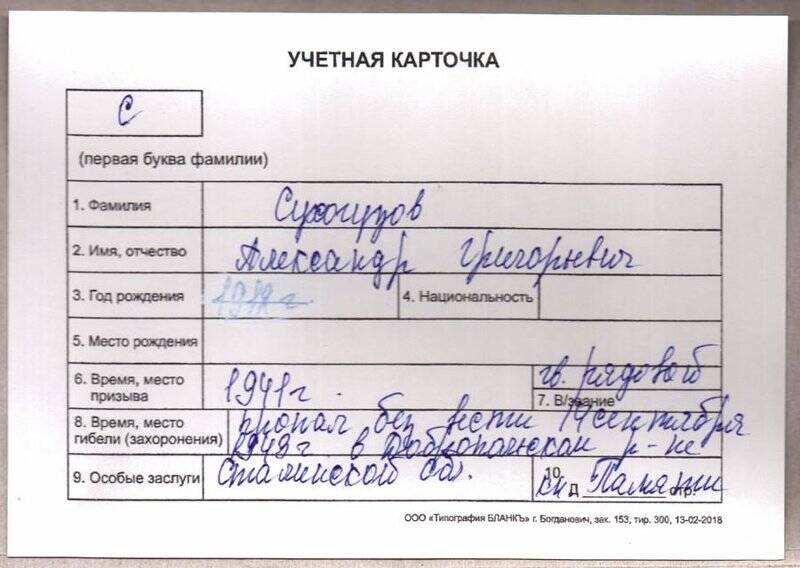 УЧЕТНАЯ КАРТОЧКА
С
(первая буква фамилии)
1. Фамилия Сухогузов
2. Имя, отчество Александр Григорьевич
3. Год рождения 4. Национальность
5. Место рождения
6. Время, место призыва 1941г. гв. рядовой
7. В/звание
8. Время, место гибели (захоронения) пропал без вести 19 сентября
1943г. в Добропольском р-не
9. Особые заслуги Сталинской обл. 10. кн Д Памяти стр.
ООО «Типография БЛАНКЪ» г. Богданович, зак. 153, тир. 300, 13-02-2018